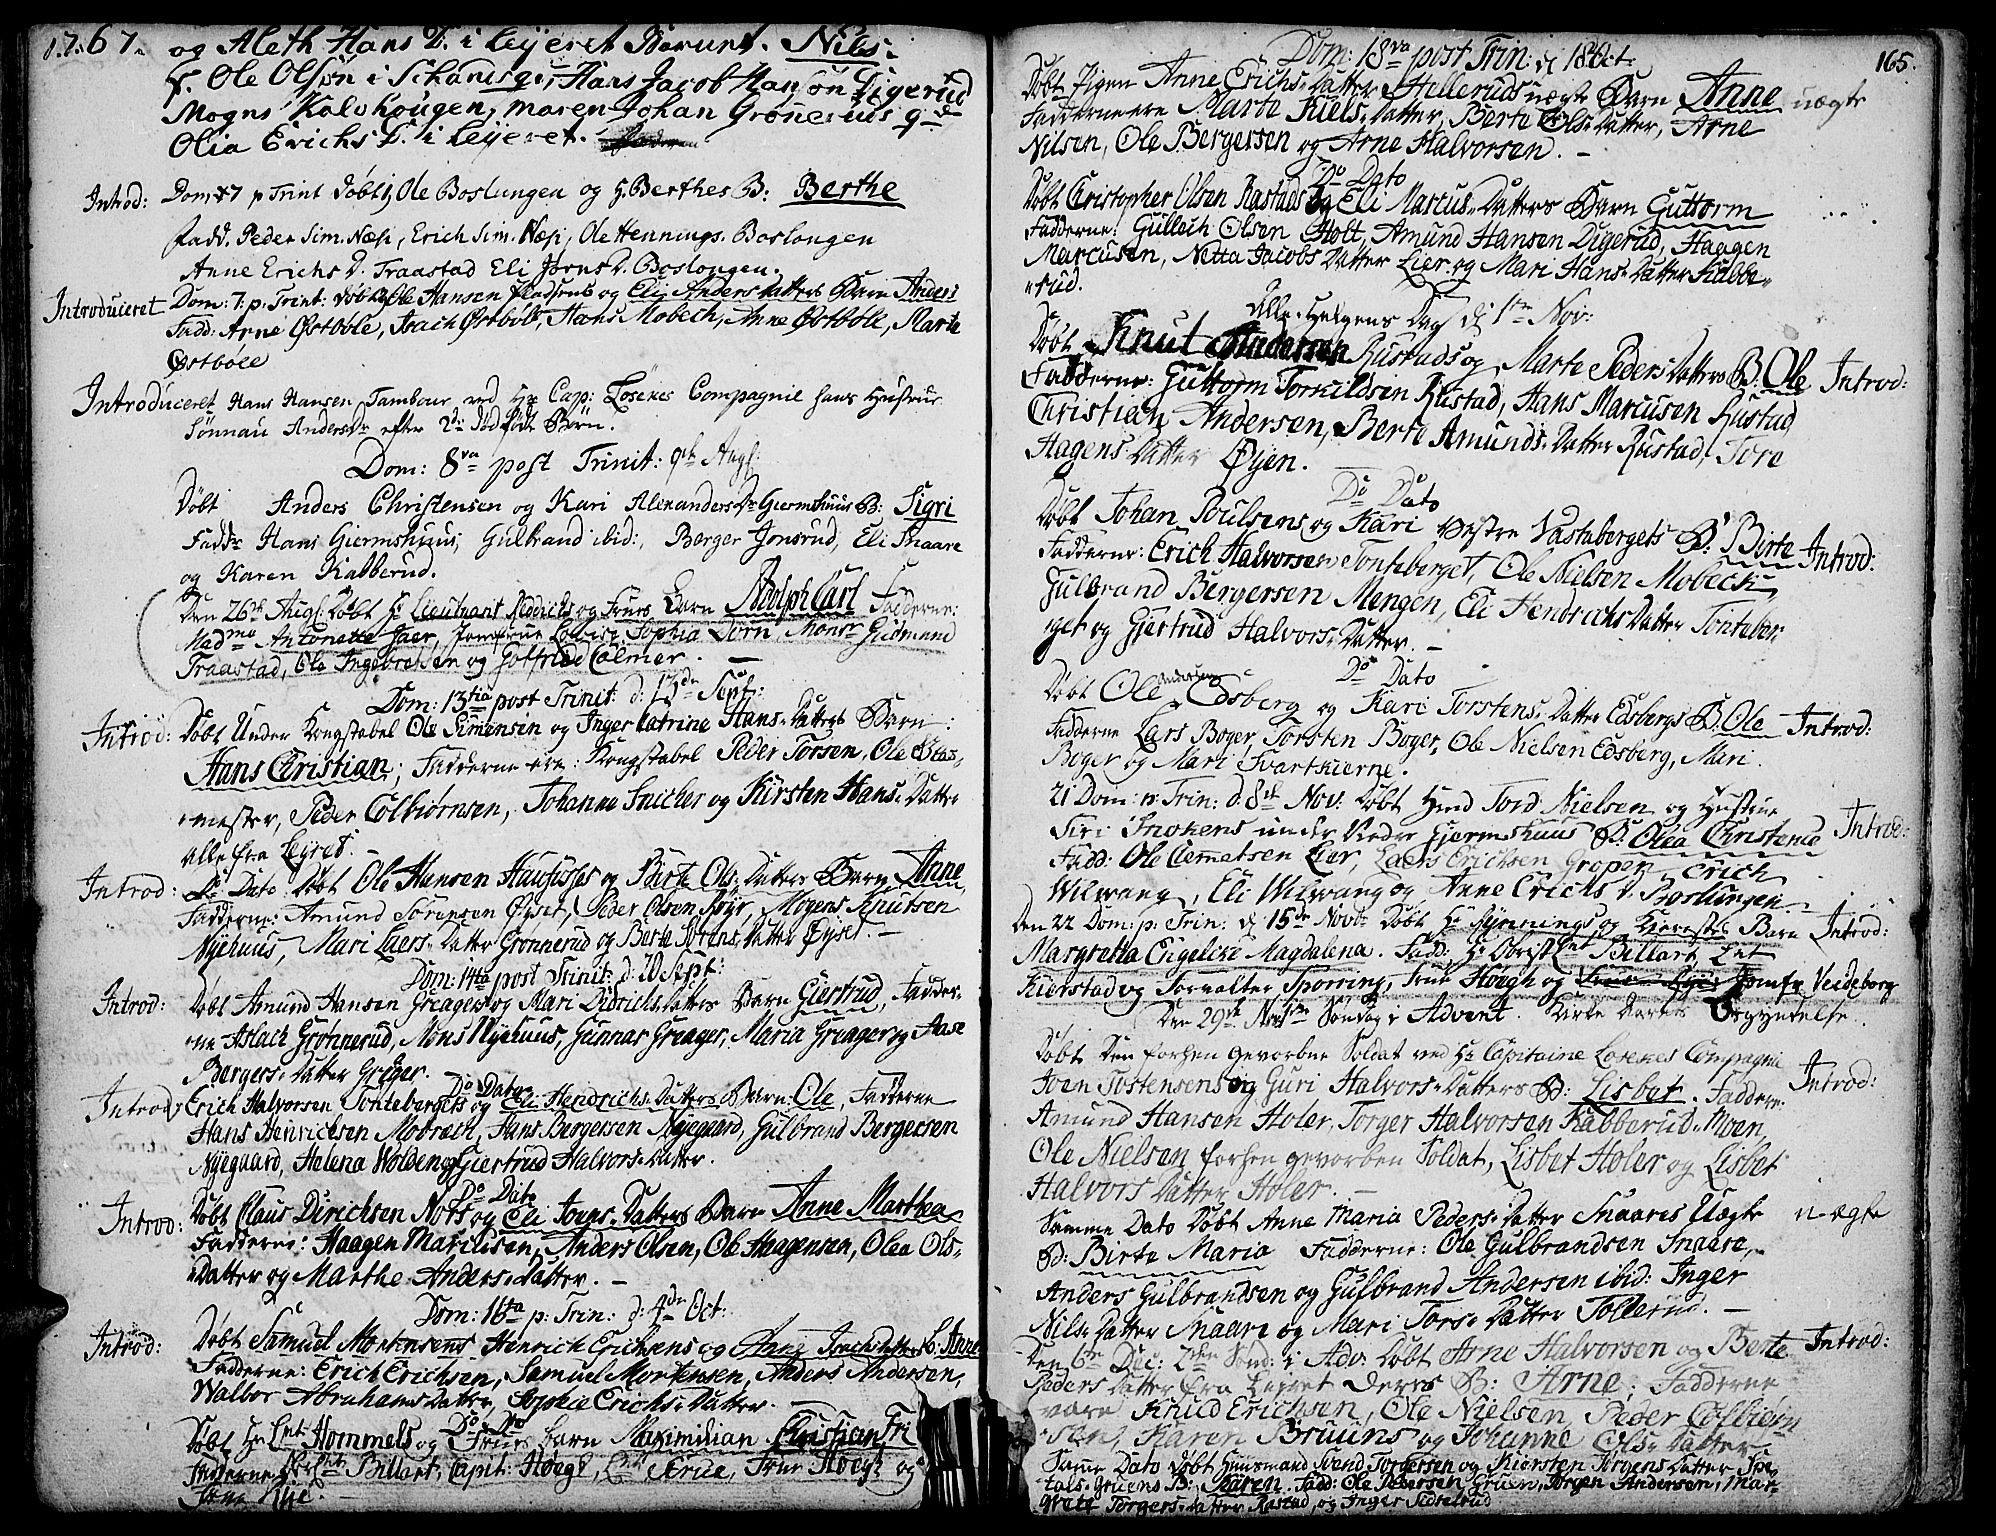 1767.
og Aleth Hans D. i Leyeret Barunt. Nils.
F. Ole Olsøn i Hans Jacob Hansøn Digerud
Mogns Kolshougen, Maren Johan Grønerud
Olia Erichs D. i Leyeret.
Introd: Dom: 7 p Trint døbt Ole Boslungen og H. Berthes B: Berthe
Fadd. Peder Sim. Næss, Erich Sim. Næss, Ole Hennings. Boslongen
Anne Erichs D. Traastad Eli Jørns D. Boslongen.
Introduceret Dom: 7. p: Trint: døbt Ole Hansen Pladsens og Eli Anders Datters Barn Anders
Fadd: Arne Østbøle, Isach Østbøle, Hans Mobech, Anne Østbøle, Marte
Østbøle
Introduceret Hans Hansen Tambour ved Hr Cap: Løsenes Compagnie hans Hustrue
Sønnau Anders Dr efter 2de død fødte Børn.
Dom: 8va post Trinit: 9de Aug:
Døbt Anders Christensen og Kari Alexanders Dr Giermshuus B: Sigri
Faddr Hans Giermshuus, Gulbrand ibid:, Berger Jonsrud, Eli Snaare
og Karen Kabberud.
Den 26de Aug: Døbt Hr Lieutnant og Frues Barn Adolph Carl Fadderne:
Madme Antonette Jomfrue Sophia Dorn, Monsr Gudmund
Traastad, Ole Ingebretsen og Gotfried Colmer.
Dom: 13tia post Trinit: d: 13de Sept:
Introd: Døbt Under Kongstabel Ole Simensen og Inger Catrine Hans-Datters Barn:
Hans Christian; Fadderne ere: Kongstabel Peder Torsen, Ole
mester, Peder Colbiørnsen, Johanne Snicker og Kirsten Hans-Datter
Alle fra Leyret.
Introd: Do Dato Døbt Ole Hansen og Birte Ols-Datters Barn Anne
Fadderne: Amund Sørensen Øyset, Peder Olsen Mogens Knutsen
Nyehuus, Mari Laers-Datter Grønnerud og Berte Sørens-Datter Øyset.
Dom: 14ta post Trinit: d: 20 Sept:
Introd: Døbt Amund Hansen Greagers og Mari Didrichs Datters Barn Giertrud, Fadder-
ne Aslach Grønnerud, Mons Nyehuus, Gunnar Greager, Maria Greager og Aase
Bergers-Datter Greger.
Do Dato
Introd: Erich Halvorsen Tontebergets og Eli Hendrichs-Datters Barn: Ole, Fadderne
Hans Henrichsen Mobæch, Hans Bergersen Nyegaard, Gulbrand Bergersen
Nyegaard, Helena Wolden og Giertrud Halvors-Datter.
Do Dato
Introd: Døbt Claus Dirichsen Nots og Eli Joens-Datters Barn Anne Marthea
Fadderne: Haagen Marcusen, Anders Olsen, Ole Haagensen, Olea Ols-
Datter og Marthe Anders-Datter.
Dom: 16ta p: Trin: d: 4de Oct:
Introd: Døbt Samuel Mortensens Henrich Erichsens og Isachs datters B: Anne
Fadderne: Erich Erichsen, Samuel Mortensen, Anders Andersen,
Walbor Abrahams Datter, Sophie Erichs-Datter.
Do Dato
Døbt Hr Lnt Hommels og Frues Barn Maximilian Christian Fri
Fadderne Billart, Capit: Høegh, Frue, Frue Høegh og
Frue
165.
Dom: 18va post Trin: d 18 Oct:
Døbt Pigen Anne Erichs-Datter Helleruds uægte Barn Anne uægte
Fadderne ere Marte Niels-Datter, Berte Ols-Datter, Arne
Nilsen, Ole Bergersen og Arne Halvorsen.
Do Dato
Døbt Cristopher Olsen Rastads og Eli Marcus-Datters Barn Guttorm
Fadderne: Gullech Olsen Holt, Amund Hansen Digerud, Haagen
Marcusen, Netta Jacobs Datter Lier og Mari Hans-Datter Kabbe-
rud.
Alle Helgens Dag d 1te Nov:
Døbt Knut Andersen Rustads og Marte Peders Datters B: Ole Introd:
Fadderne: Guttorm Torkildsen Rustad, Hans Marcusen Rustad,
Christian Andersen, Berte Amunds-Datter Rustad, Tore
Hagens Datter Øyen.
Do Dato
Døbt Johan Poulsens og Kari Vestre Vastabergets B: Birte Introd:
Fadderne: Erich Halvorsen Tonteberget, Ole Nielsen Mobech
Gulbrand Bergersen Mengen, Eli Hendrichs Datter Tonteber-
get og Gjertrud Halvors-Datter.
Do Dato
Døbt Ole Andersen Edsberg og Kari Torstens-Datter Edsbergs B: Ole Introd:
Fadderne Lars Boger, Torsten Boger, Ole Nielsen Edsberg, Mari
Boger og Mari Svartkierne.
21 Dom: p: Trin: d: 8de Nov: Døbt Hmd Tord Nielsen og Hustrue
Siri Snokens under Nedre Gjermshuus B: Olea Christence Introd:
Fadd: Ole Clemetsen Lier, Laers Erichsen Gropen, Erich
Wilwang, Eli Wilwang og Anne Erichs D. Boslungen.
Den 22 Dom: p: Trin: d 15de Novbr Døbt Hr Rynnings og Kierestes Barn Introd:
Margretta Engelche Magdalena. Fadd: Hr Obristlnt Billart, Lnt
Kierstad og Forvalter Sporring, Frue Høegh og Jomfr Veideborg
Den 29de Nov 1te Søndag i Advent. Kirke Aarets Begyndelse.
Døbt Den forhen gevorbne Soldat ved Hr Capitaine Løsenes Compagnie
Joen Tostensens og Guri Halvors-Datters B: Lisbet. Fadderne: Introd:
Amund Hansen Holer, Torger Halvorsen Kabberud-Moen,
Ole Nielsen forhen gevorben Soldat, Lisbet Holer og Lisbet
Halvors Datter Holer.
Samme Dato Døbt Anne Maria Peders-Datter Snaares Uægte uægte
B: Birte Maria Fadderne: Ole Gulbrandsen Snaare,
Anders Gulbrandsen og Gulbrand Andersen ibid: Inger
Nils-Datter Snaare og Mari Tors-Datter Tollerud.
Den 6te Dec: 2den Sønd: i Adv: Døbt Arne Halvorsen og Berte Introd:
Peders Datter fra Leiret deres B: Arne; Fadderne
vare Knud Erichsen, Ole Nielsen, Peder Colbiørn-
sen, Karen Bruuns og Johanne Ols-Datter
Samme Dato Døbt Huusmand Svend Torgersen og Kiersten Torgens Datter Spe-
tals-Gruens B: Karen. Fadd: Ole Petersen Gruen, Jørgen Andersen, Mar-
grete Torgers-Datter Rastad, og Inger Sidselrud